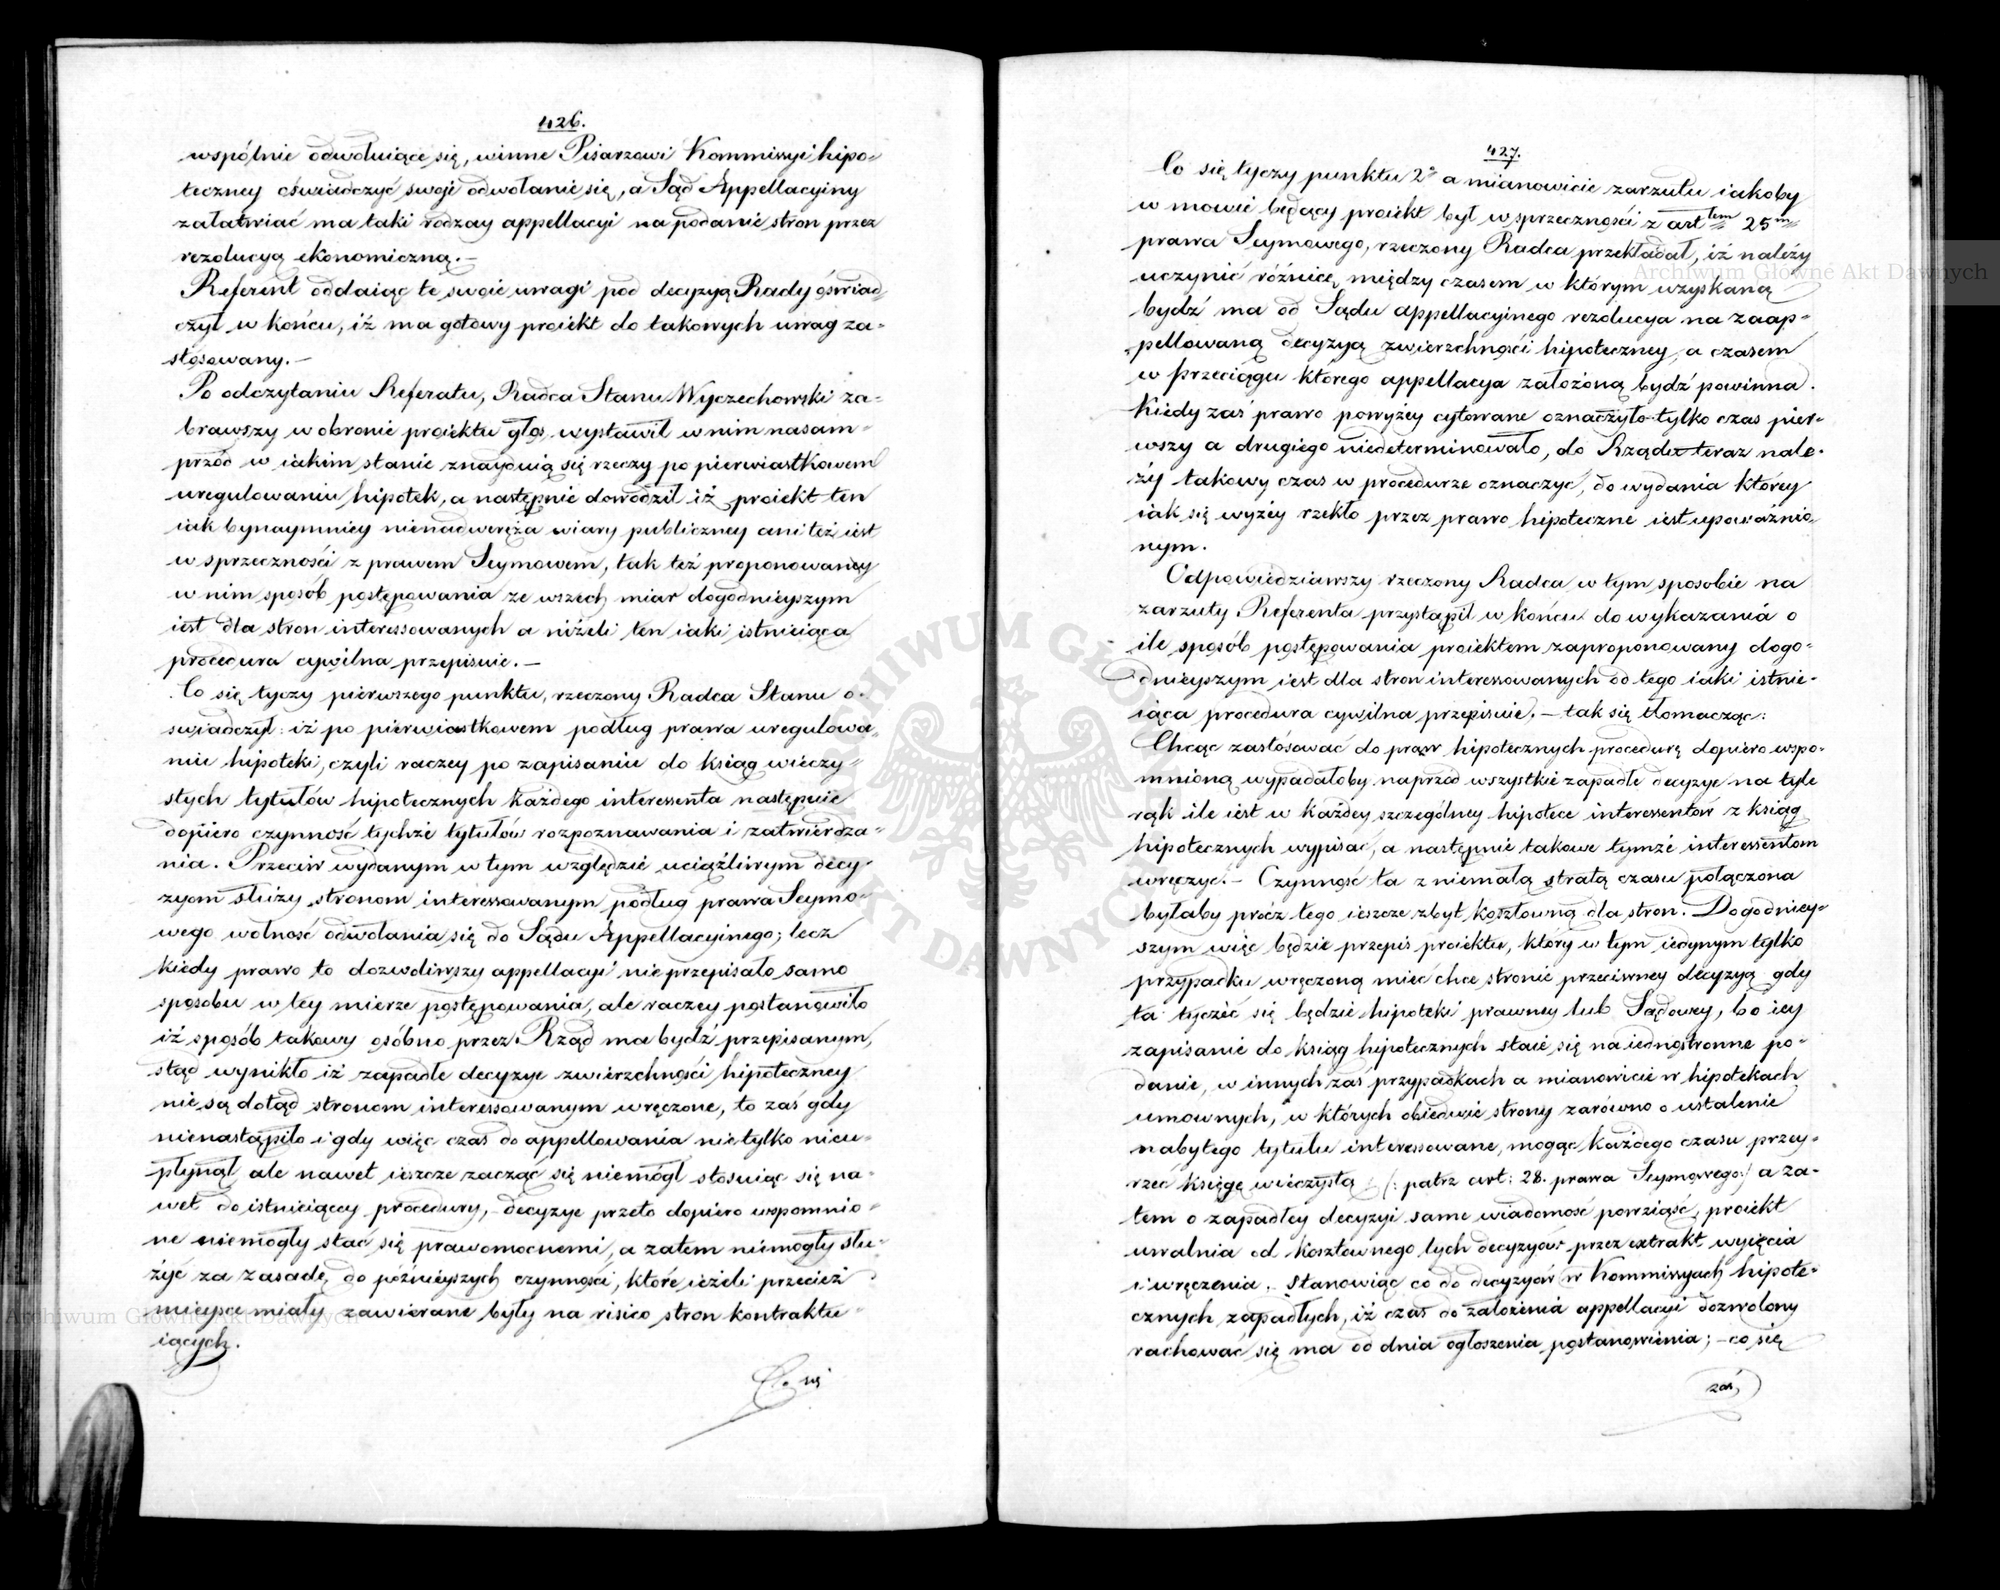 426.
wspólnie odwołuiące się, winne Pisarzowi Kommissyi hipo-
teczney oświadczyć swoje odwołanie się, a Sąd Appellacyiny
załatwiać ma taki rodzay appellacyi na podanie stron przez
rezolucyą ekonomiczną. —
Referent oddaiąc te swoie uwagi pod decyzyą Rady oświad-
czył w końcu, iż ma gotowy proiekt do takowych uwag za-
stósowany. —
Po odczytaniu Referatu, Radca Stanu Wyczechowski za-
brawszy w obronie proiektu głos, wystawił w nim nasam-
przód w iakim stanie znayduią się rzeczy po pierwiastkowem
uregulowaniu hipotek, a następnie dowodził iż proiekt ten
iak bynaymniey nienadweręża wiary publiczney ani też iest
w sprzeczności z prawem Seymowem, tak też proponowany
w nim sposób postępowania ze wszech miar dogodnieyszym
iest dla stron interessowanych a niżeli ten iaki istnieiąca
procedura cywilna przepisuie. —
Co się tyczy pierwszego punktu, rzeczony Radca Stanu o-
swiadczył: iż po pierwiastkowem podług prawa uregulowa-
niu hipoteki, czyli raczey po zapisaniu do ksiąg wieczy-
stych tytułów hipotecznych każdego interessenta następuie
dopiero czynność tychże tytułów rozpoznawania i zatwierdza-
nia. Przeciw wydanym w tym względzie uciążliwym decy-
zyom służy stronom interessowanym podług prawa Seymo-
wego wolność odwołania się do Sądu Appellacyinego; lecz
kiedy prawo to dozwoliwszy appellacyi nie przepisało samo
sposobu w tey mierze postępowania, ale raczey postanowiło
iż sposób takowy osóbno przez Rząd ma bydź przepisanym,
stąd wynikło iż zapadłe decyzye zwierzchności hipoteczney
nie są dotąd stronom interessowanym wręczone, to zaś gdy
nienastąpiło i gdy więc czas do appellowania nietylko nieu-
płynął ale nawet ieszcze zacząć się niemógł stosuiąc się na-
wet do istnieiącey procedury, — decyzye przeto dopiero wspomnio-
ne niemogły stać się prawomocnemi, a zatem niemogły słu-
żyć za zasadę do późnieyszych czynności, które ieżeli przecież
mieysce miały zawierane były na risico stron kontraktu-
iących.
Co się
427.
Co się tyczy punktu 2o a mianowicie zarzutu iakoby
w mowie będący proiekt był w sprzeczności z arttem 25m
prawa Seymowego, rzeczony Radca przekładał, iż należy
uczynić różnicę między czasem w którym wzyskaną
bydź ma od Sądu appellacyinego rezolucya na zaap-
pellowaną decyzyą zwierzchności hipoteczney, a czasem
w przeciągu którego appellacya założoną bydź powinna.
Kiedy zaś prawo powyżey cytowane oznaczyło tylko czas pier-
wszy a drugiego niedeterminowało, do Rządu teraz nale-
ży takowy czas w procedurze oznaczyć, do wydania którey
iak się wyżey rzekło przez prawo hipoteczne iest upoważnio-
nym.
Odpowiedziawszy rzeczony Radca w tym sposobie na
zarzuty Referenta przystąpił w końcu do wykazania o
ile sposób postępowania proiektem zaproponowany dogo-
dnieyszym iest dla stron interessowanych od tego iaki istnie-
iąca procedura cywilna przepisuie, — tak się tłomacząc:
Chcąc zastósować do praw hipotecznych procedurę dopiero wspo-
mnioną wypadałoby naprzód wszystkie zapadłe decyzye na tyle
rąk ile iest w każdey szczególney hipotece interessentów z ksiąg
hipotecznych wypisać, a następnie takowe tymże interessentom
wręczyć. — Czynność ta z niemałą stratą czasu połączona
byłaby prócz tego ieszcze zbyt kosztowną dla stron. Dogodniey-
szym więc będzie przepis proiektu, który w tym iedynym tylko
przypadku wręczoną mieć chce stronie przeciwney decyzyą gdy
ta tyczéć się będzie hipoteki prawney lub Sądowey, bo iey
zapisanie do ksiąg hipotecznych staie się na iednostronne po-
danie, w innych zaś przypadkach a mianowicie w hipotekach
umownych, w których obiedwie strony zarówno o ustalenie
nabytego tytułu interessowane, mogąc każdego czasu przey-
rzeć księgę wieczystą (: patrz art: 28. prawa Seymowego:) a za-
tem o zapadłey decyzyi same wiadomość powziąść, proiekt
uwalnia od kosztownego tych decyzyów przez extrakt wyięcia
i wręczenia. Stanowiąc co do decyzyów w Kommissyach hipote-
cznych zapadłych, iż czas do założenia appellacyi dozwolony
rachować się ma od dnia ogłoszenia postanowienia; — co się
zaś
Archiwum Główne Akt Dawnych
Archiwum Główne Akt Dawnych
ARCHIWUM GŁÓWNE AKT DAWNYCH